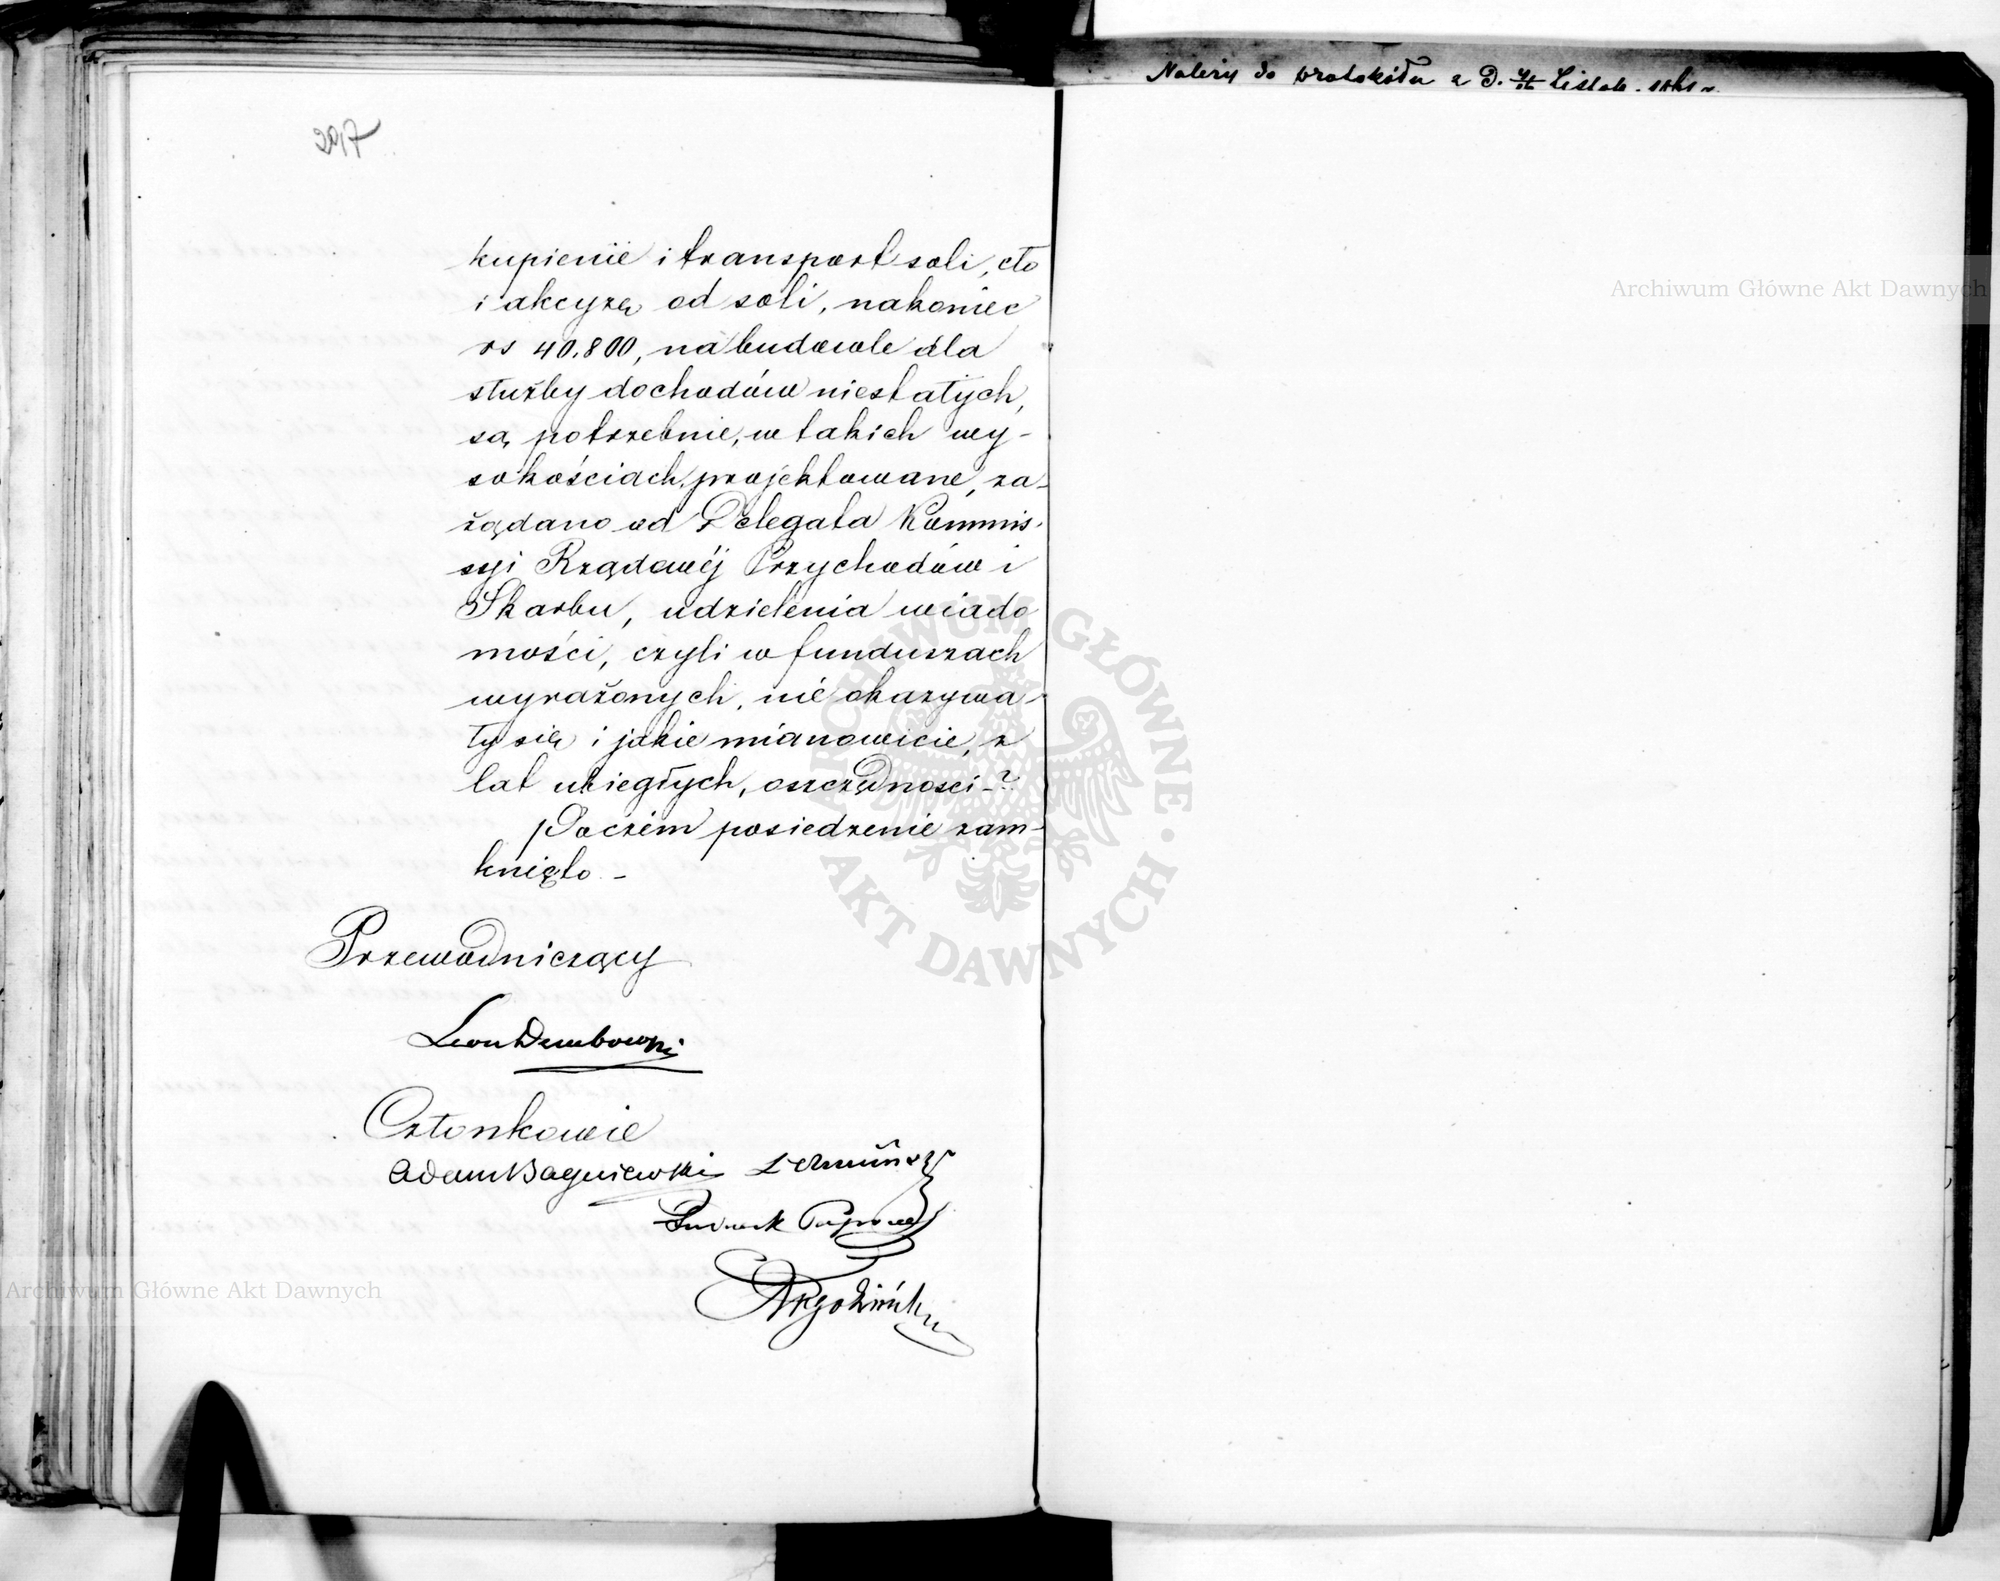 2017
kupienie i transport soli, cło
i akcyzę od soli, nakoniec
rs 40.800, na budowle dla
służby dochodów niestałych,
są potrzebnie, w takich wy-
sokościach projektowane, za-
żądano od Delegata Kommis-
syi Rządowéj Przychodów i
Skarbu, udzielenia wiado
mości, czyli w funduszach
wyrażonych, nie okazywa-
ły się i jakie mianowicie, z
lat ubiegłych, oszczędności -?
Poczém posiedzenie zam-
knięto. -
Przewodniczący
Leon Dembowski
Członkowie
Adam Bagniewski
Należy do protokółu z D. Listop.
Archiwum Główne Akt Dawnych
Archiwum Główne Akt Dawnych
ARCHIWUM GŁÓWNE · AKT DAWNYCH ·